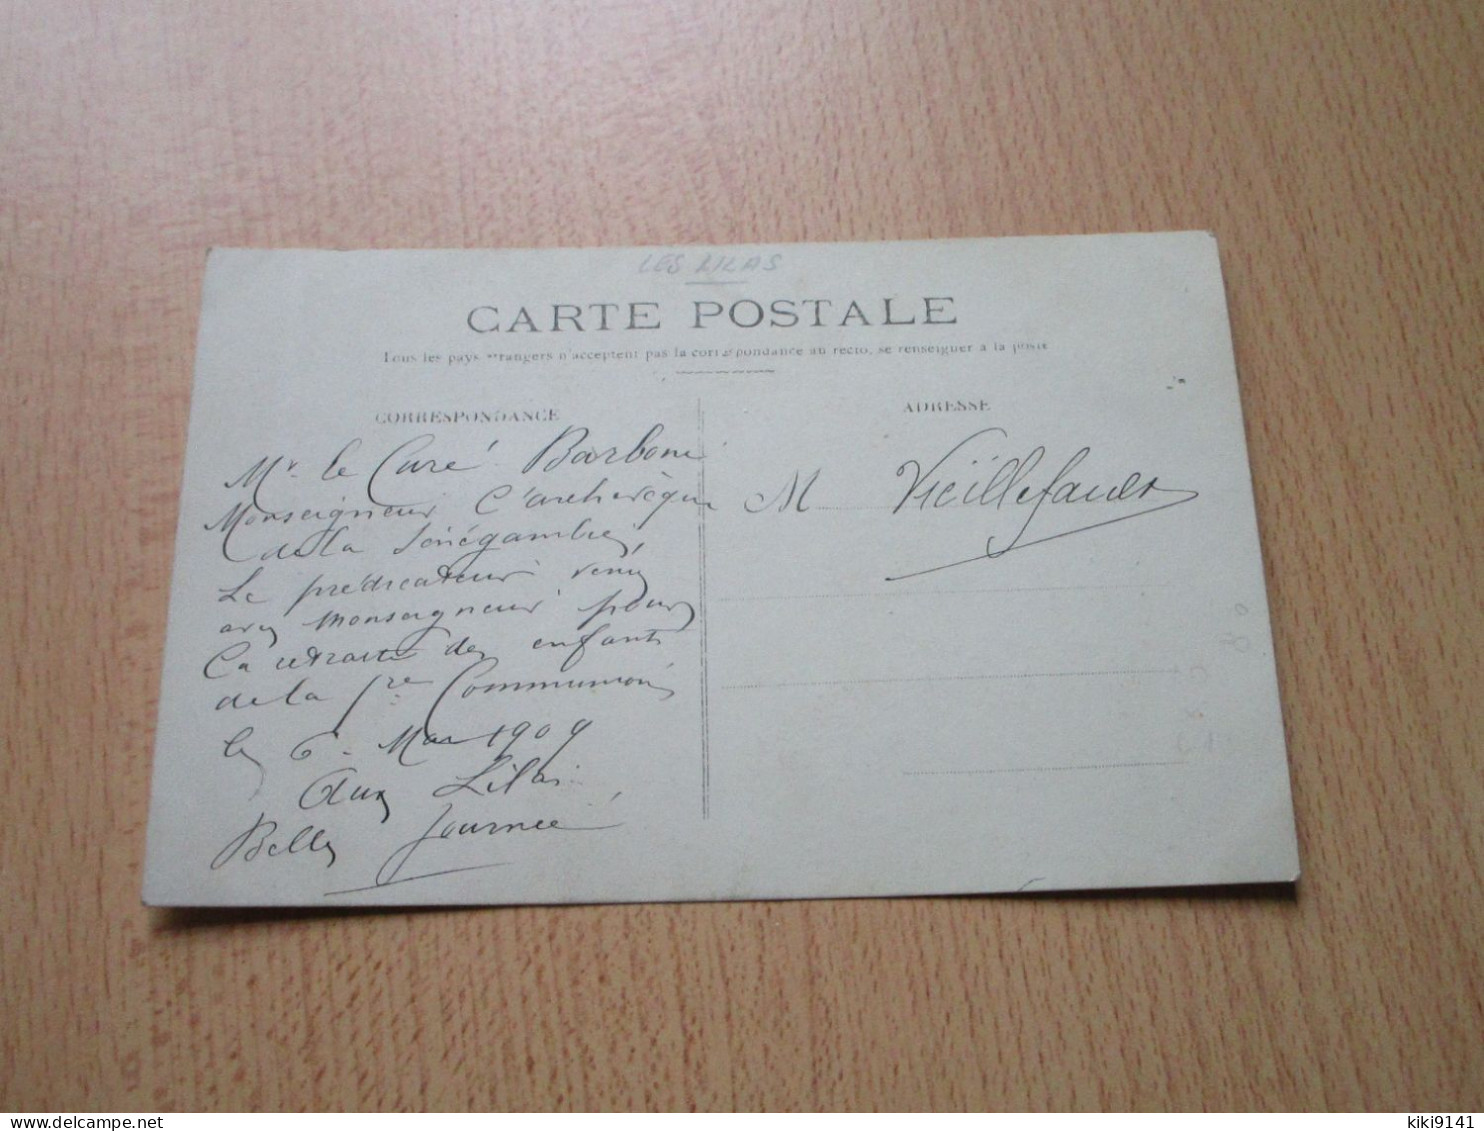 LES LILAS
CARTE POSTALE
Tous les pays étrangers n'acceptent pas la correspondance au recto, se renseigner à la poste
CORRESPONDANCE
Mr le Curé Barboni
Monseigneur l'archevêque
de la Sénégambie,
Le prédicateur venu
avec Monseigneur pour
la retraite des enfants
de la 1re Communion
le 6 Mai 1909
Aux Lilas
Belle journée
ADRESSE
M Vieillefault
kiki9141